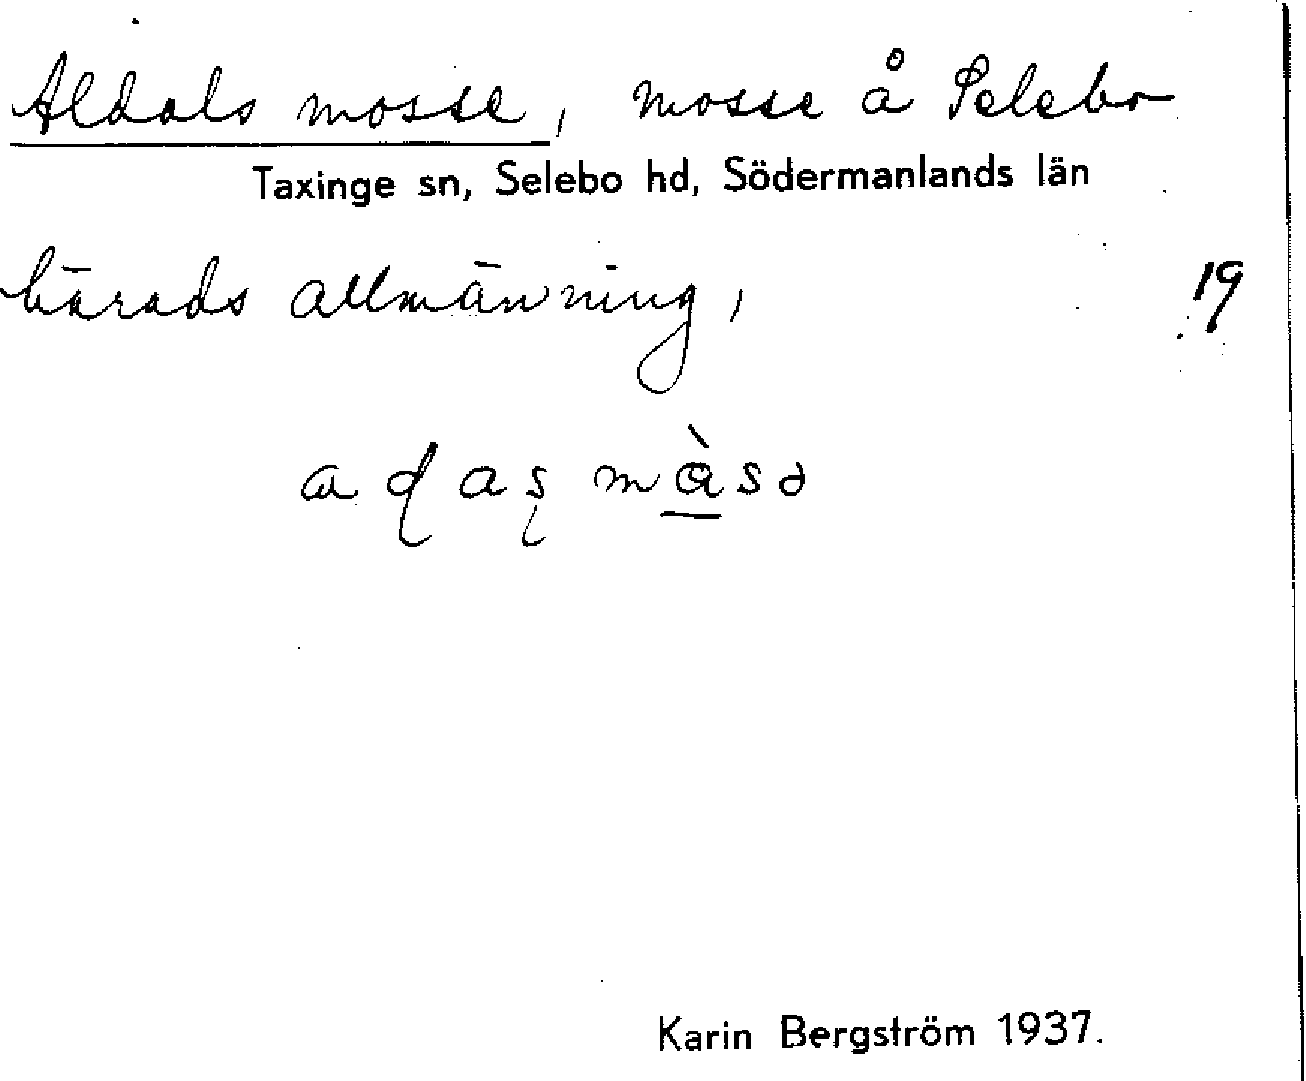 Aldals mosse, mosse å Selebo
Taxinge sn, Selebo hd, Södermanlands län
härads allmänning,
19
aɖaʂ mὰsə
Karin Bergström 1937.